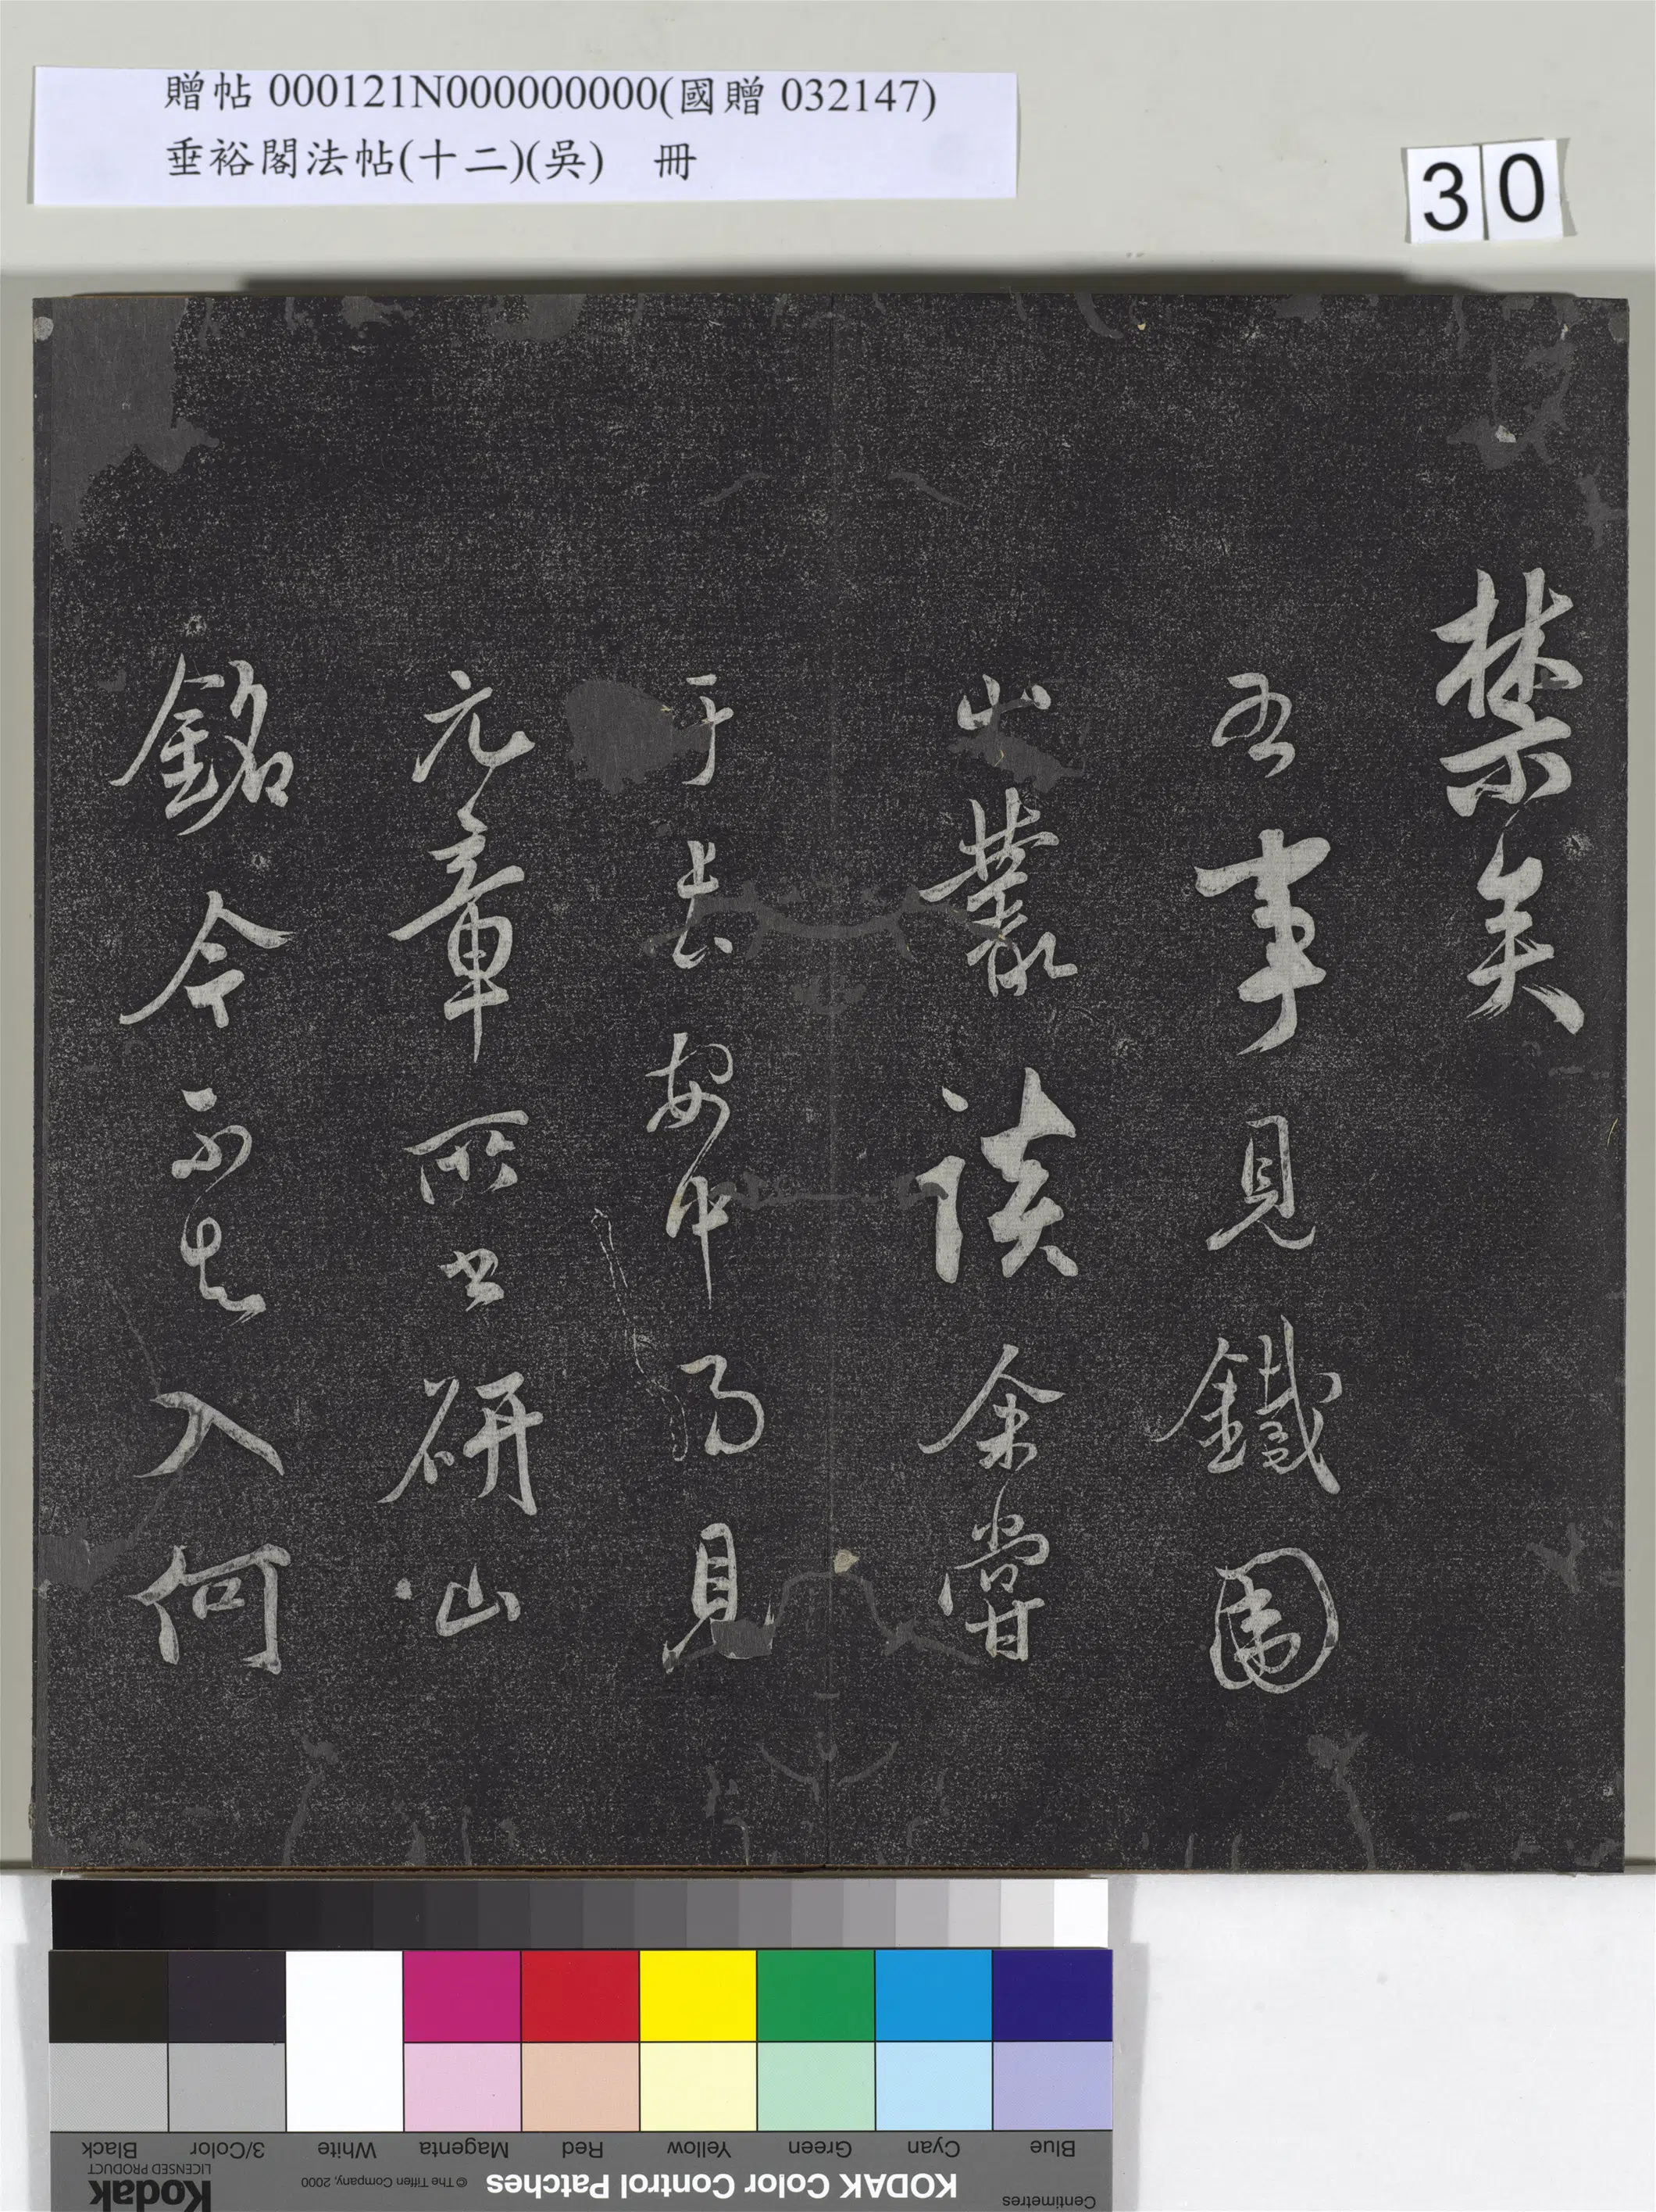 贈帖 000121N000000000(國贈 032147)
垂裕閣法帖(十二)(吳) 冊
30
禁矣
右事見鐵圍
山叢談余嘗
于長安中得見
元章所書研山
銘今不知入何
Blue
Cyan
Green
Yellow
Red
Magenta
White
3/Color
Black
Centimetres
KODAK Color Control Patches
© The Tiffen Company, 2000
Kodak
LICENSED PRODUCT